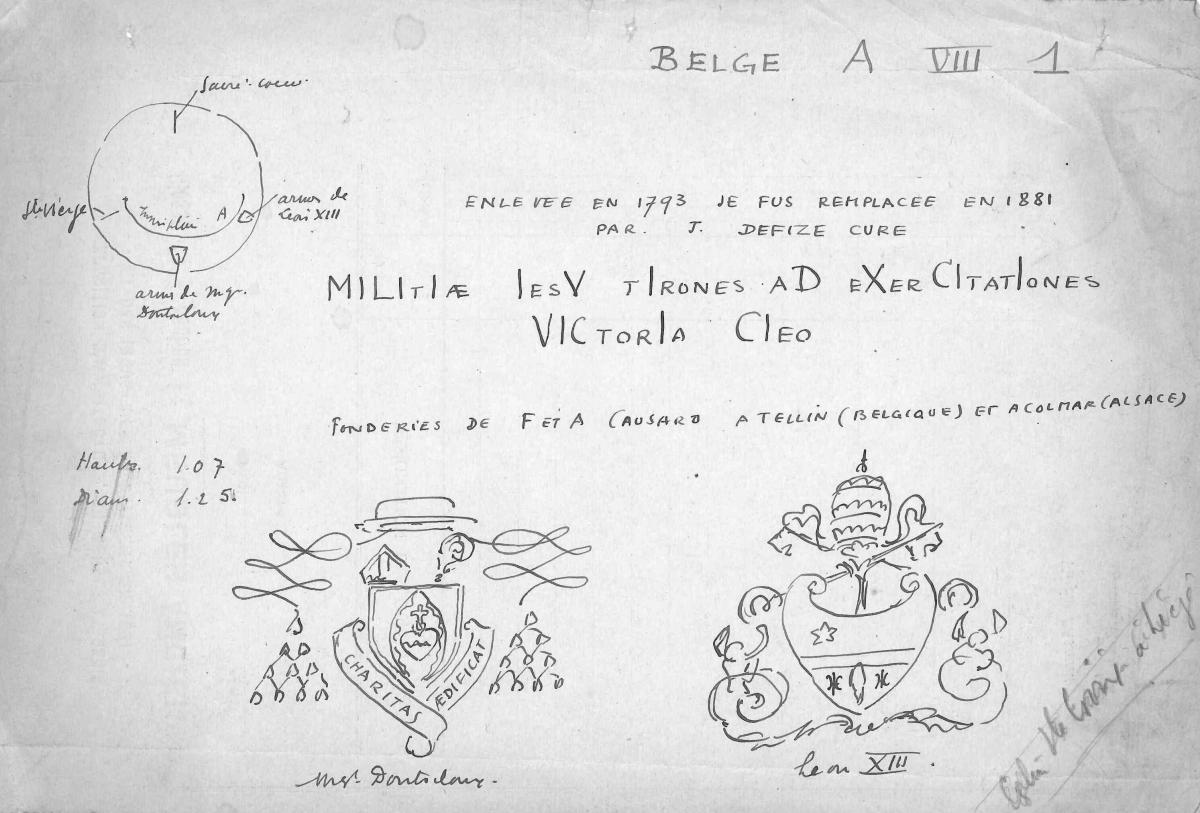 BELGE A VIII 1
Sacré-cœur
Ste Vierge
Inscription A
armes de
Léon XIII
armes de Mgr.
Doutreloux
ENLEVEE EN 1793 JE FUS REMPLACEE EN 1881
PAR. J. DEFIZE CURE
MILItIÆ IesV tIRONES AD eXerCItatIONES
VICtorIA CIEO
FONDERIES DE F ET A CAUSARD A TELLIN (BELGIQUE) ET A COLMAR (ALSACE)
Haut. 1.07
Diam. 1.25.
CHARITAS ÆDIFICAT
Mgr Doutreloux.
Léon XIII.
Eglise Ste Croix à Liège